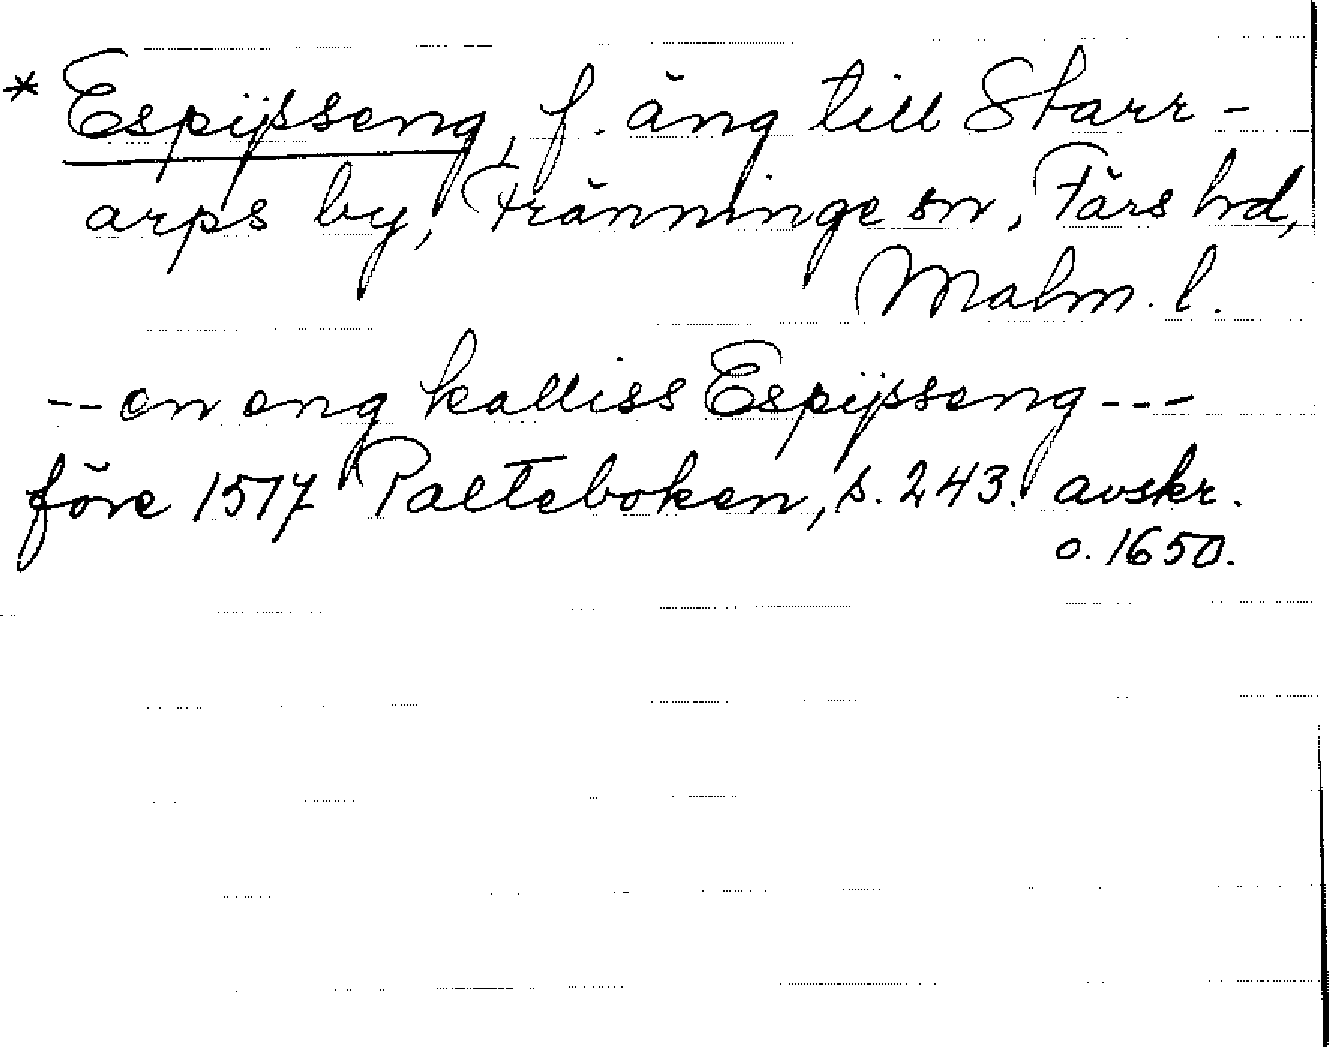 * Espijsseng, f. äng till Starr-
arps by, Fränninge sn, Färs hd,
Malm. l.
-- en eng kalliss Espijsseng ---
före 1517 Palteboken, s. 243. avskr.
o. 1650.